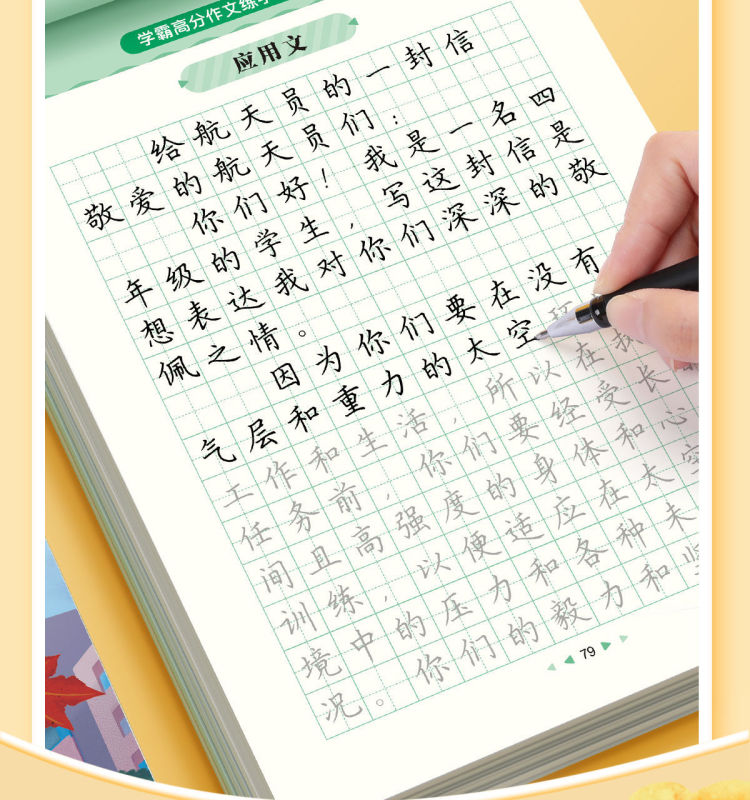 学霸高分作文练字
应用文
给航天员的一封信
敬爱的航天员们：
你们好！我是一名四
年级的学生，写这封信是
想表达我对你们深深的敬
佩之情。
因为你们要在没有
气层和重力的太空
工作和生活，所以在
任务前，你们要经受长
间且高强度的身体和心
训练，以便适应在太空
境中的压力和各种未
况。你们的毅力和
79